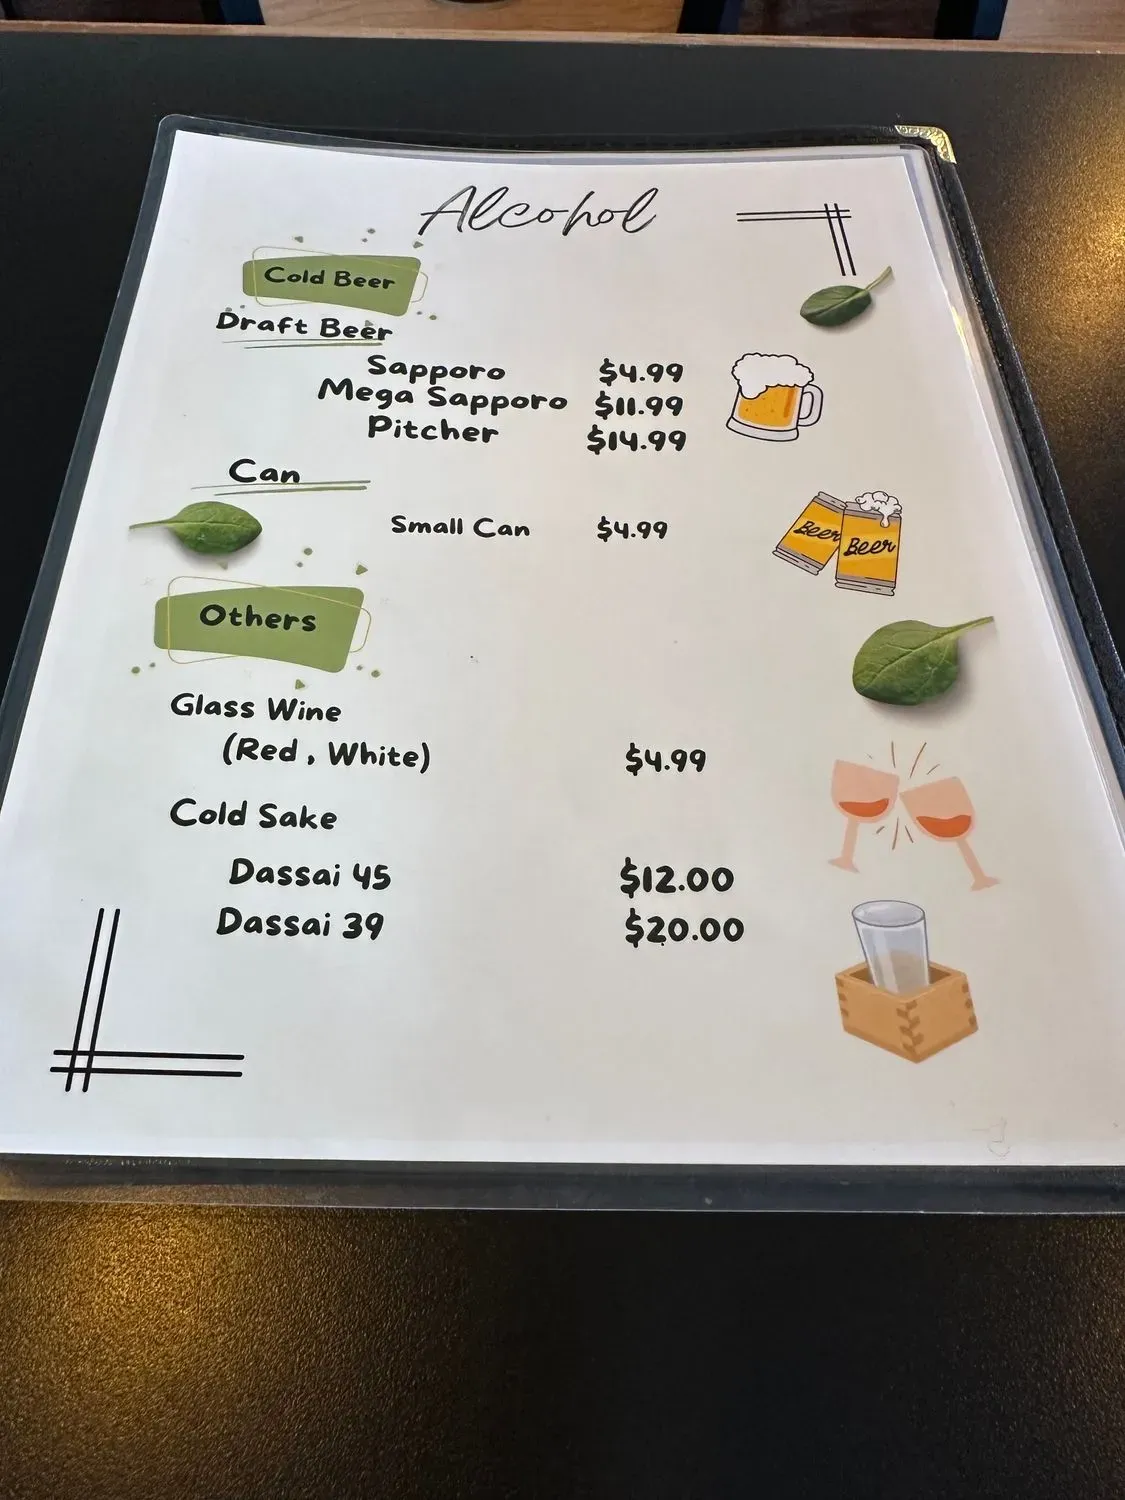 Alcohol
Cold Beer
Draft Beer
Sapporo $4.99
Mega Sapporo $11.99
Pitcher $14.99
Can
Small Can $4.99
Beer Beer
Others
Glass Wine
(Red , White) $4.99
Cold Sake
Dassai 45 $12.00
Dassai 39 $20.00